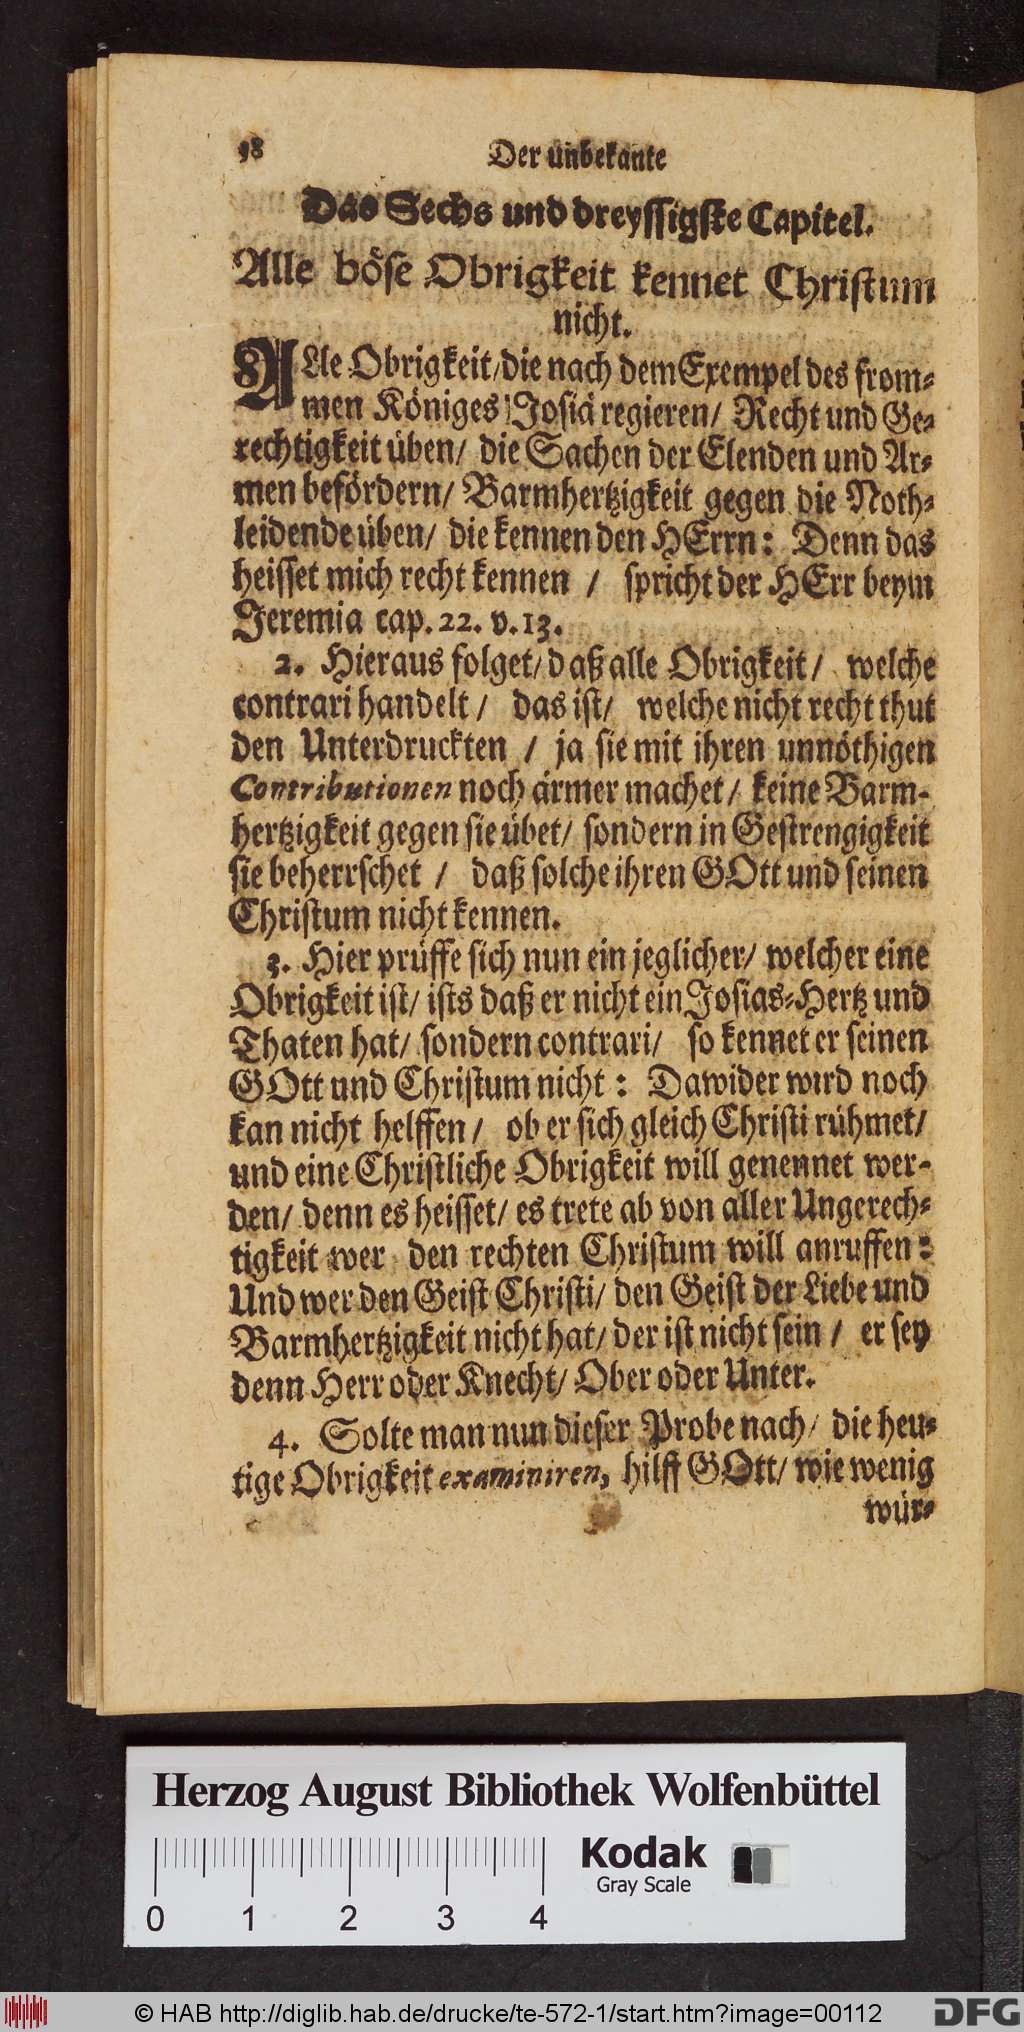 98
Der unbekante
Das Sechs und dreyssigste Capitel.
Alle böse Obrigkeit kennet Christum
nicht.
ALle Obrigkeit/die nach dem Exempel des from-
men Königes Josiä regieren/ Recht und Ge-
rechtigkeit üben/ die Sachen der Elenden und Ar-
men befördern/ Barmhertzigkeit gegen die Noth-
leidende üben/ die kennen den HErrn: Denn das
heisset mich recht kennen / spricht der HErr beym
Jeremia cap. 22. v. 13.
2. Hieraus folget/ daß alle Obrigkeit/ welche
contrari handelt / das ist/ welche nicht recht thut
den Unterdruckten / ja sie mit ihren unnöthigen
Contributionen noch ärmer machet/ keine Barm-
hertzigkeit gegen sie übet/ sondern in Gestrengigkeit
sie beherrschet / daß solche ihren GOtt und seinen
Christum nicht kennen.
3. Hier prüffe sich nun ein jeglicher/ welcher eine
Obrigkeit ist/ ists daß er nicht ein Josias-Hertz und
Thaten hat/ sondern contrari/ so kennet er seinen
GOtt und Christum nicht: Dawider wird noch
kan nicht helffen / ob er sich gleich Christi rühmet/
und eine Christliche Obrigkeit will genennet wer-
den/ denn es heisset/ es trete ab von aller Ungerech-
tigkeit wer den rechten Christum will anruffen:
Und wer den Geist Christi/ den Geist der Liebe und
Barmhertzigkeit nicht hat/ der ist nicht sein / er sey
denn Herr oder Knecht/ Ober oder Unter.
4. Solte man nun dieser Probe nach/ die heu-
tige Obrigkeit examiniren, hilff GOtt/ wie wenig
wür-
Herzog August Bibliothek Wolfenbüttel
Kodak
Gray Scale
0 1 2 3 4
© HAB http://diglib.hab.de/drucke/te-572-1/start.htm?image=00112
DFG